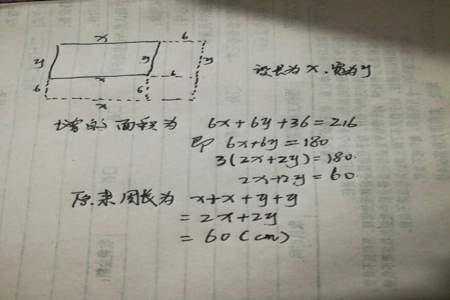 x 6
y y y
x 6
6 6
x
设长为x.宽为y
增的面积为 6x+6y+36=216
即 6x+6y=180
3(2x+2y)=180.
2x+2y=60
原来周长为 x+x+y+y
=2x+2y
=60(cm)